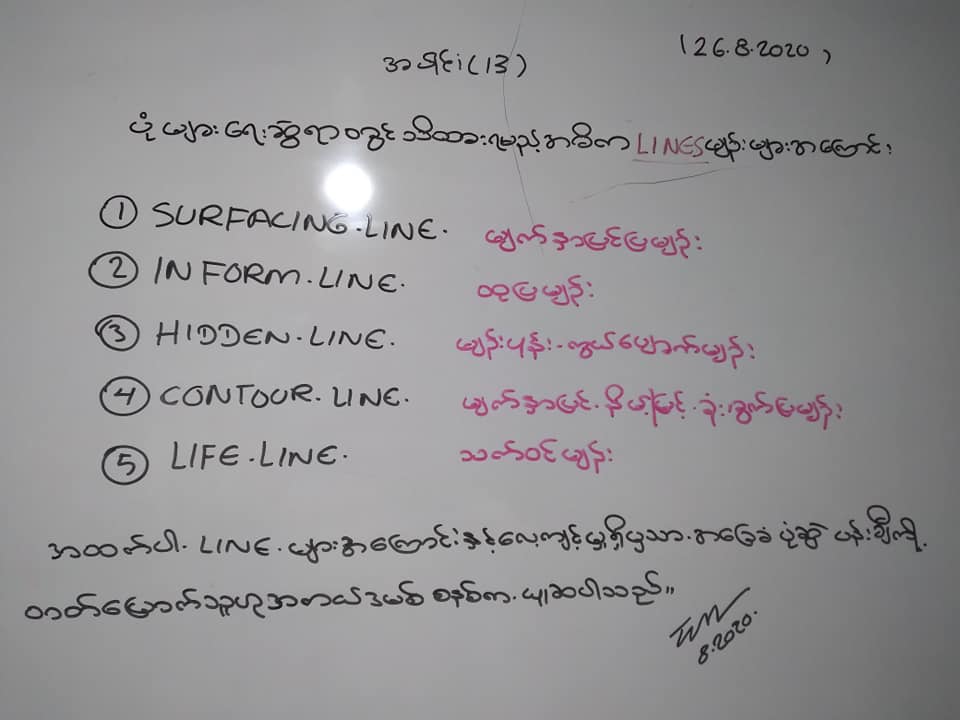 (26.8.2020)
အပိုင်း(13)
ပုံများရေးဆွဲရာဝယ်တွင် သိထားရမည့်အဓိက LINESမျဉ်းများအကြောင်း
① SURFACING.LINE. မျက်နှာပြင်ပြမျဉ်း
② IN FORM.LINE. ထုပြမျဉ်း
③ HIDDEN.LINE. မျဉ်းပုန်း-ကွယ်ပျောက်မျဉ်း
④ CONTOUR.LINE. မျက်နှာပြင်.နိမ့်မြင့်.ခုံးခွက်ပြမျဉ်း
⑤ LIFE.LINE. သက်ဝင်မျဉ်း
အထက်ပါ. LINE. များအကြောင်းနှင့်လေ့ကျင့်မှုရှိမှသာ.အခြေခံ ပုံဆွဲ ပန်းချီကို.
တတ်မြောက်သူဟုအကယ်ဒမစ် စနစ်က.ယူဆပါသည်။
8.2020.